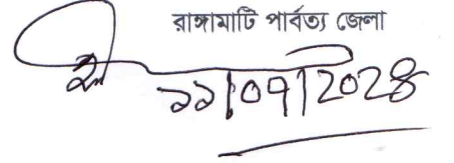 রাঙ্গামাটি পার্বত্য জেলা
১১/০৭/২০২৪